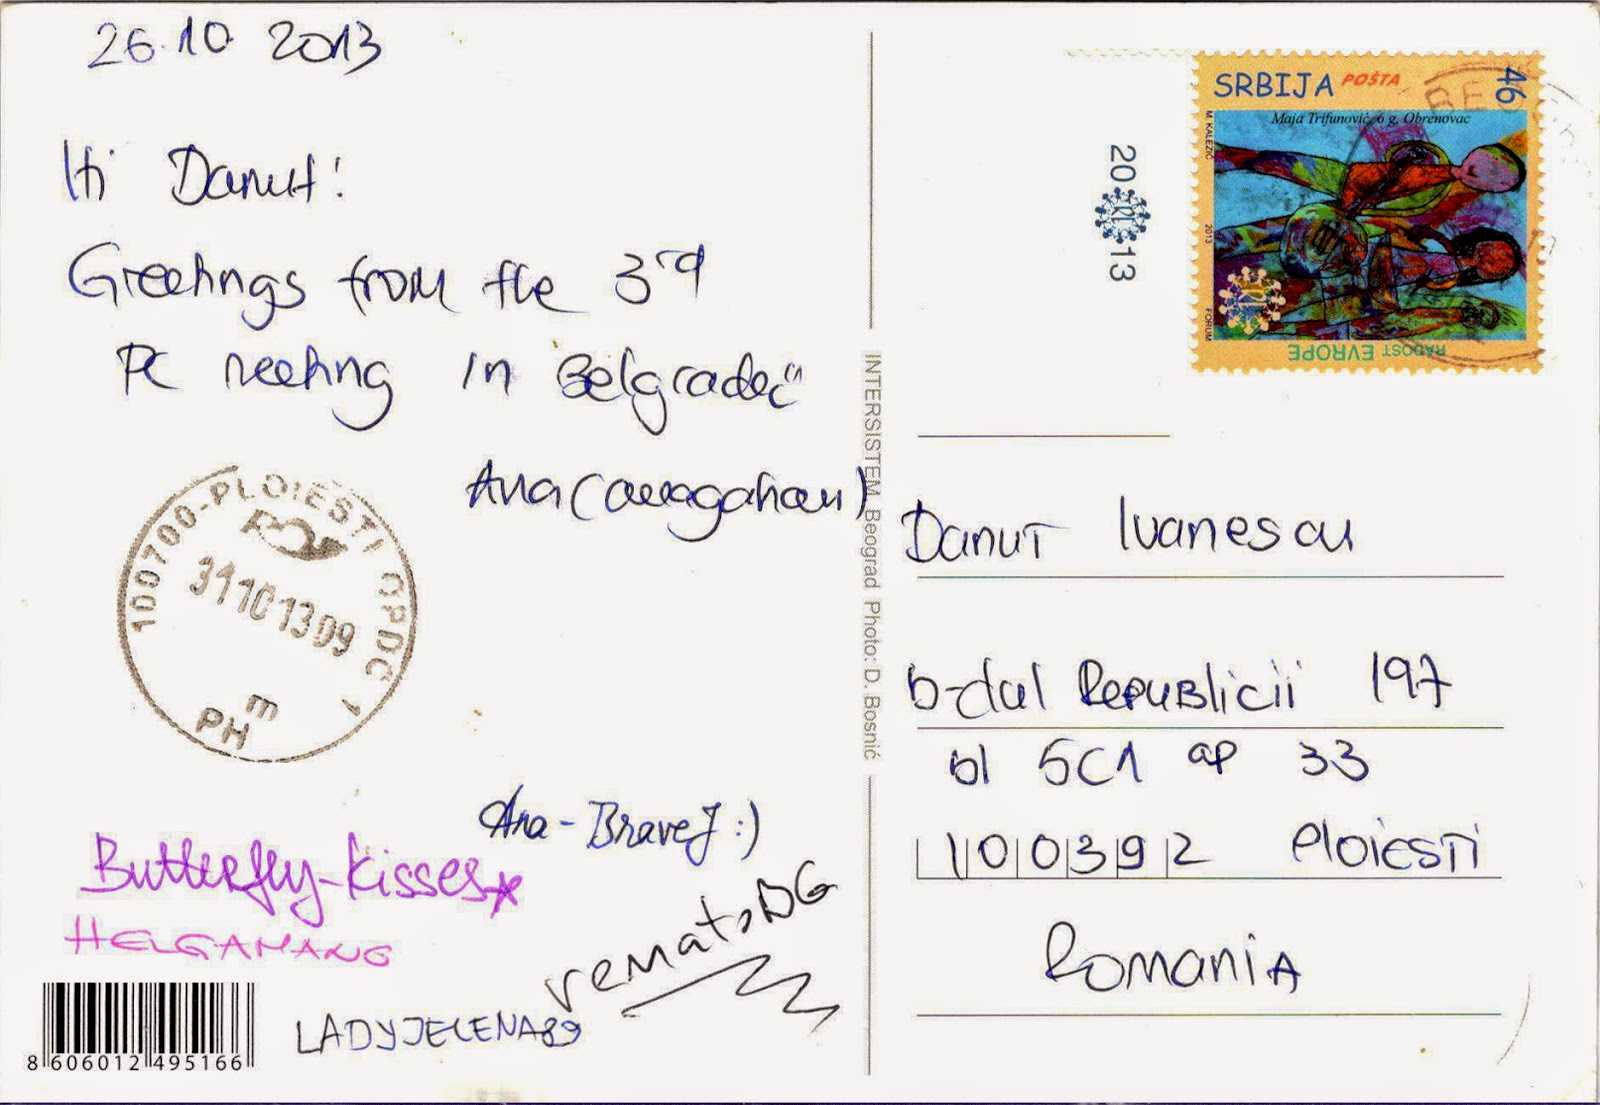 26.10 2013
Hi Danut!
Greetings from the 3rd
PC meeting in Belgrade
Ana (
100700-PLOIESTI OPDC 1
31 10 13 09
m
PH
Ana - BraveJ :)
Butterfly-Kisses
HELGAMANG
rematsDG
LADYJELENA89
8 606012 495166
INTERSISTEM Beograd Photo: D. Bosnić
2013
SRBIJA POŠTA 46
Maja Trifunović, 6 g, Obrenovac
M. KALEZIĆ 2013 FORUM
RADOST EVROPE
BEO
Danut Ivanescu
b-dul Republicii 197
bl 5C1 ap 33
100392 Ploiesti
Romania